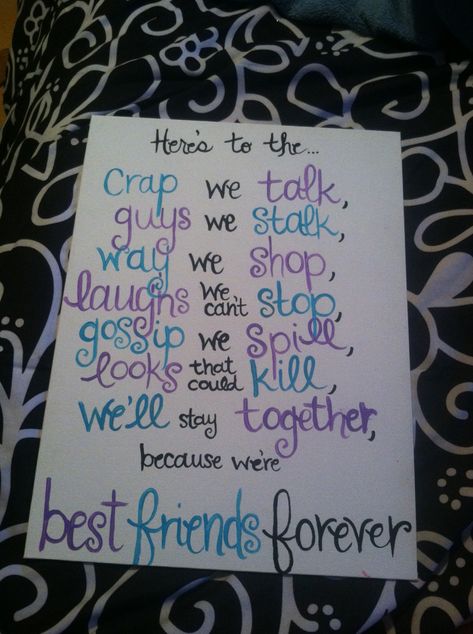 Here's to the...
Crap we talk,
guys we stalk,
way we shop,
laughs we can't stop,
gossip we spill,
looks that could kill,
we'll stay together,
because we're
best friends forever